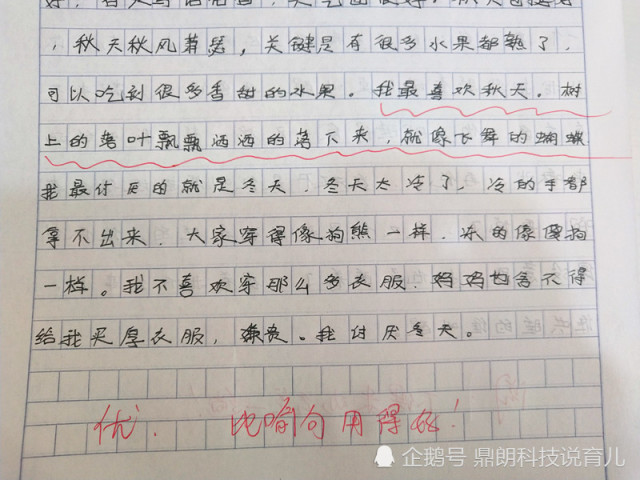 ，秋天秋风萧瑟，关键是有很多水果都熟了，
可以吃到很多香甜的水果。我最喜欢秋天。树
上的落叶飘飘洒洒的落下来，就像飞舞的蝴蝶
我最讨厌的就是冬天，冬天太冷了，冷的手都
拿不出来，大家穿得像狗熊一样，冻的像傻狗
一样。我不喜欢穿那么多衣服，妈妈也舍不得
给我买厚衣服，嫌贵。我讨厌冬天。
优. 比喻句用得好！
企鹅号 鼎朗科技说育儿